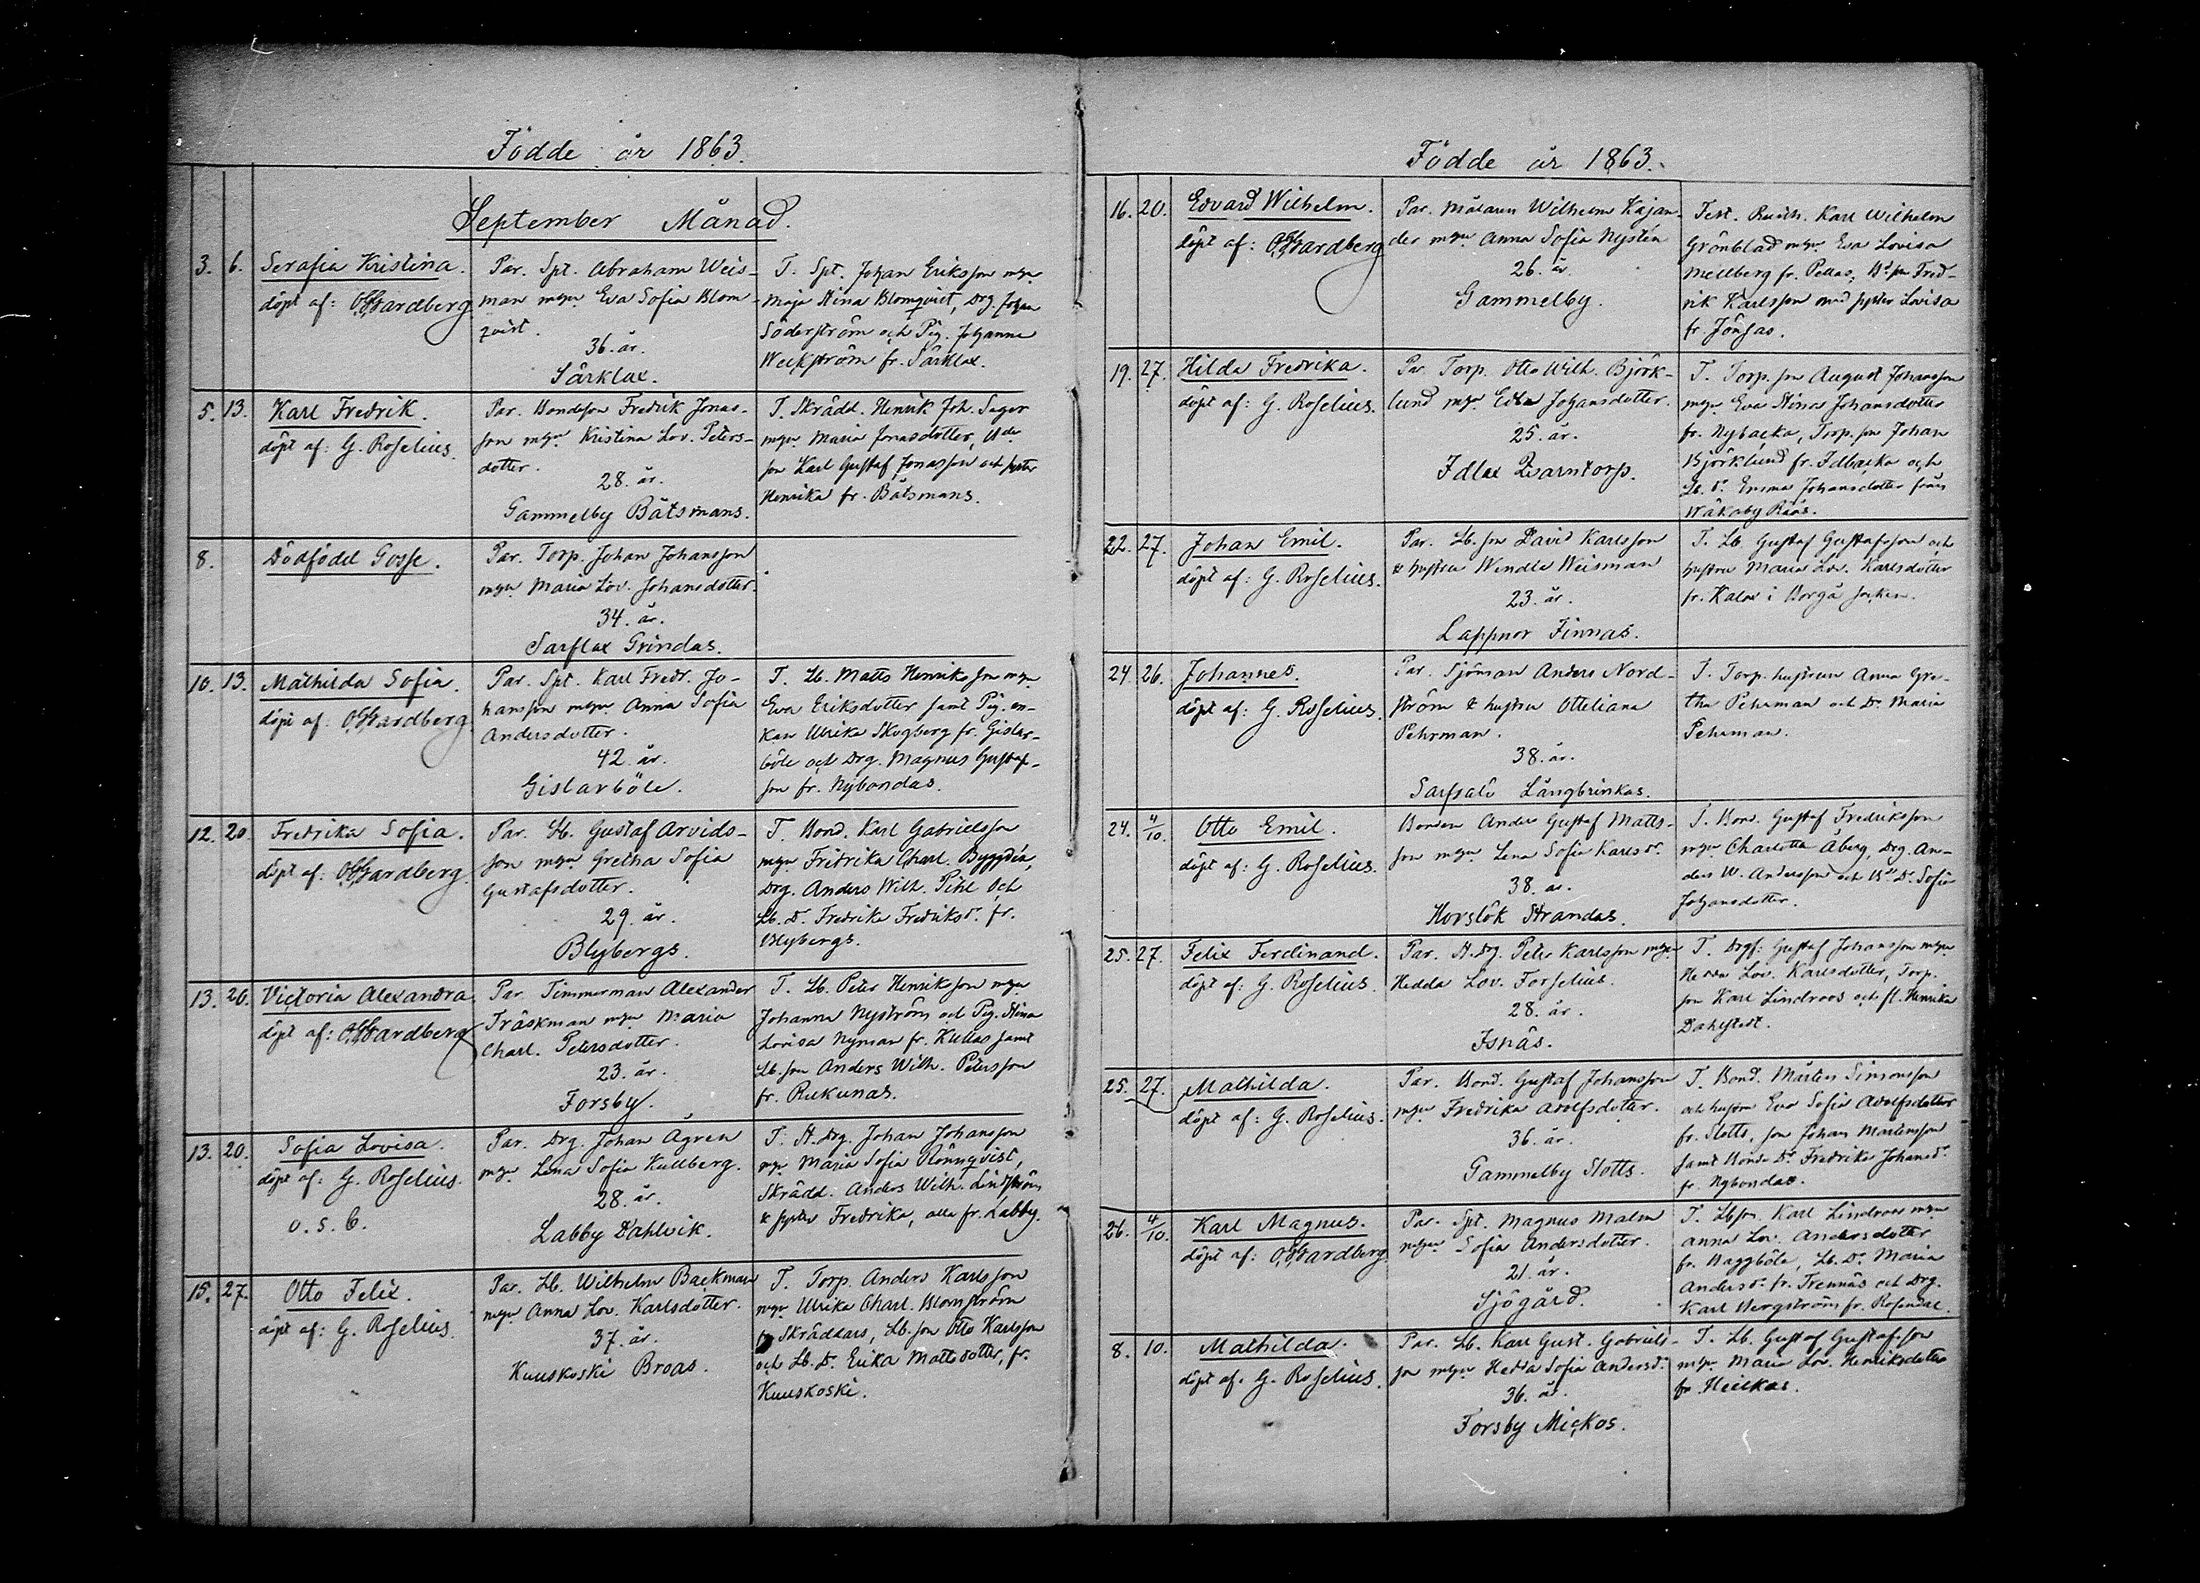 Födde år 1863.
September Månad.
3. 6. Serafia Kristina.
döpt af: O. Hardberg
Par. Spt. Abraham Weis-
man m hu Eva Sofia Blom-
qvist.
36. år.
Särklax.
T. Spt. Johan Eriksson
Maja Stina Blomqvist, Drg. Johan
Söderström och Pig. Johanna
Weckström fr. Särklax.
5. 13. Karl Fredrik.
döpt af: G. Roselius.
Par. Bondeson Fredrik Jonas-
son Kristina Lov. Peters-
dotter.
28. år.
Gammelby Båtsmans.
T. Skrädd. Henrik Joh. Sager
Maria Jonasdotter,
son Karl Gustaf Jonasson och syster
Henrika fr. Båtsmans.
8. Dödfödd Gosse.
Par. Torp. Johan Johansson
Maria Lov. Johansdotter.
34. år.
Sarflax Grindas.
10. 13. Mathilda Sofia.
döpt af: Hardberg.
Par. Spt. Karl Fredr. Jo-
hansson Anna Sofia
Andersdotter.
42. år.
Gislarböle.
T. Lb. Matts Henriksson
Eva Eriksdotter samt Pig. en-
kan Ulrika Skogberg fr. Gislar-
böle och Drg. Magnus Gustafs-
son fr. Nybondas.
12. 20. Fredrika Sofia.
döpt af: Hardberg.
Par. Lb. Gustaf Arvids-
son Gretha Sofia
Gustafsdotter.
29. år.
Blybergs.
T. Bond. Karl Gabrielsson
Fridrika Charl. Byggdén,
Drg. Anders Wilh. Pihl och
Lb. D. Fredrika Fredriksdr. fr.
Blybergs.
13. 26. Victoria Alexandra
döpt af: Hardberg
Par. Timmerman Alexander
Träskman Maria
Charl. Petersdotter.
23. år.
Forsby.
T. Lb. Peter Henriksson
Johanna Nyström och Pig. Stina
Lovisa Nyman fr. Kullas samt
Lb. son Anders Wilh. Petersson
fr. Rukunas.
13. 20. Sofia Lovisa.
döpt af: G. Roselius.
o. s. b.
Par. Drg. Johan Ågren
Lena Sofia Kullberg.
28. år.
Labby Dahlvik.
T. H. drg. Johan Johansson
Maria Sofia Rönnqvist,
Skrädd. Anders Wilh. Lindström
& syster Fredrika, alla fr. Labby.
15. 27. Otto Felix.
döpt af: G. Roselius.
Par. Lb. Wilhelm Backman
Anna Lov. Karlsdotter.
37. år.
Kuuskoski Broas.
T. Torp. Anders Karlsson
Ulrika Charl. Blomström
Skräddars, Lb. son Otto Karlsson
och Lb. D. Erika Mattsdotter, fr.
Kuuskoski.
Födde år 1863.
16. 20. Edvard Wilhelm.
döpt af: Hardberg
Par. Målaren Wilhelm Kajan-
der Anna Sofia Nystén
26. år.
Gammelby.
Test. Karl Wilhelm
Grönblad Eva Lovisa
Mellberg fr. Pellas, Fred-
rik Karlsson med syster Lovisa
fr. Jönsas.
19. 27. Hilda Fredrika.
döpt af: G. Roselius.
Par. Torp. Otto Wilh. Björk-
lund Edla Johansdotter.
25. år.
Idlax Qvarntorp.
T. Torp. son August Johansson
Eva Stina Johansdotter
fr. Nybacka, Torp. son Johan
Björklund fr. Idbacka och
Lb. D. Emma Johansdotter från
Wåkoby Röös.
22. 27. Johan Emil.
döpt af: G. Roselius.
Par. Lb. son David Karlsson
& hustru Wendla Weisman
23. år.
Lappnor Finnas.
T. Lb. Gustaf Gustafsson och
hustru Maria Lov. Karlsdotter
fr. Kalax i Borgå socken.
24 26. Johannes.
döpt af: G. Roselius.
Par. Sjöman Anders Nord-
ström & hustru Otteliana
Pehrman.
38. år.
Sarfsalö Långbrinkas.
T. Torp. hustrun Anna Gre-
tha Pehrman och D. Maria
Pehrman.
24. 4/10. Otto Emil.
döpt af: G. Roselius.
Bonden Anders Gustaf Matts-
son Lena Sofia Karlsdr.
38. år.
Horslök Strandas.
T. Bond. Gustaf Fredriksson
Charlotta Åberg, Drg. An-
ders W. Andersson och D. Sofia
Johansdotter.
25. 27. Felix Ferdinand.
döpt af: G. Roselius.
Par. H. drg. Peter Karlsson
Hedda Lov. Forselius.
28. år.
Isnäs.
T. Gustaf Johansson
Hedda Lov. Karlsdotter, Torp.
son Karl Lindroos och fl. Henrika
Dahlstedt.
25. 27. Mathilda.
döpt af: G. Roselius.
Par. Bond. Gustaf Johansson
Fredrika Adolfsdotter.
36. år.
Gammelby Slotts.
T. Bond. Mårten Simonsson
och hustru Eva Sofia Adolfsdotter
fr. Slotts, son Johan Mårtensson
samt Bonde D. Fredrika Johansdr.
fr. Nybondas.
26. 4/10. Karl Magnus.
döpt af: Hardberg
Par. Spt. Magnus Malm
Sofia Andersdotter.
21. år.
Sjögård.
T. Lb son Karl Lindroos
Anna Lov. Andersdotter
fr. Baggböle, Lb. D. Maria
Andersdr. fr. Trennäs och Drg.
Karl Bergström fr. Rosendal.
8. 10. Mathilda.
döpt af: G. Roselius.
Par. Lb. Karl Gust. Gabriels-
son Hedda Sofia Andersd.
36. år.
Forsby Mickos.
T. Lb. Gustaf Gustafsson
Maria Lov. Henriksdotter
fr. Heickas.